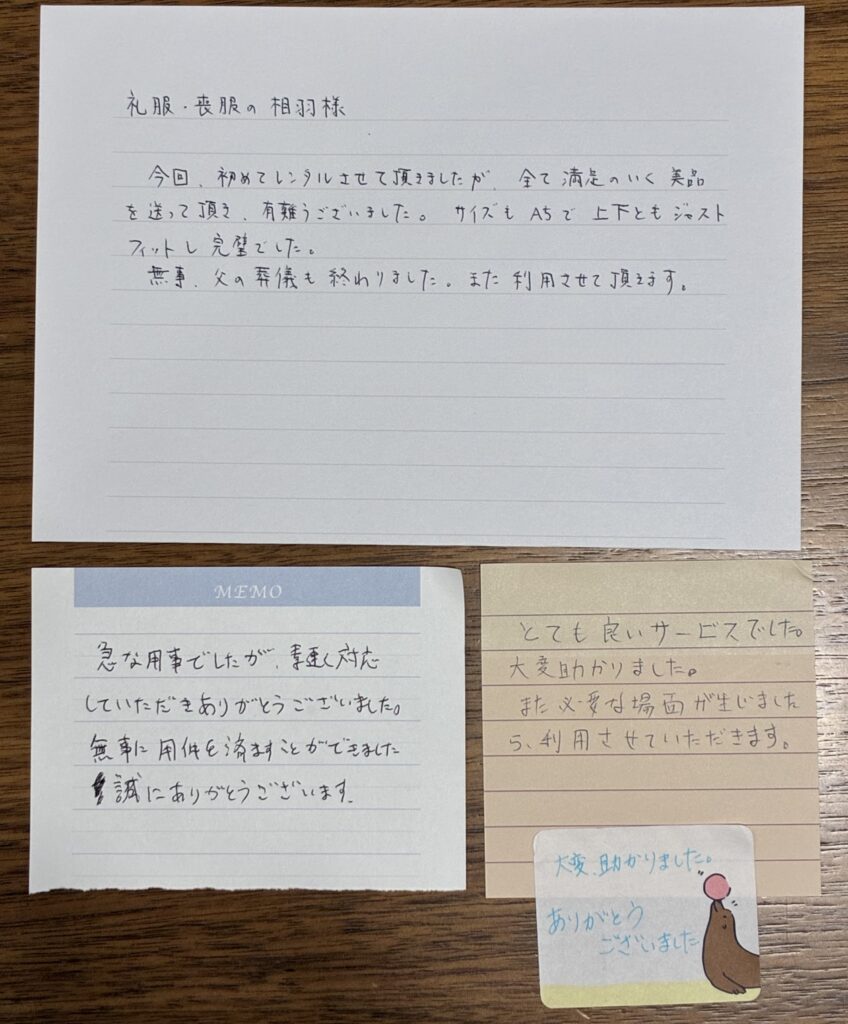 礼服・喪服の相羽様
今回、初めてレンタルさせて頂きましたが、全て満足のいく美品
を送って頂き、有難うございました。サイズもA5で上下ともジャスト
フィットし完璧でした。
無事、父の葬儀も終わりました。また利用させて頂きます。
MEMO
急な用事でしたが、素速く対応
していただきありがとうございました。
無事に用件を済ますことができました
誠にありがとうございます。
とても良いサービスでした。
大変助かりました。
また必要な場面が生じました
ら、利用させていただきます。
大変、助かりました。
ありがとう
ございました